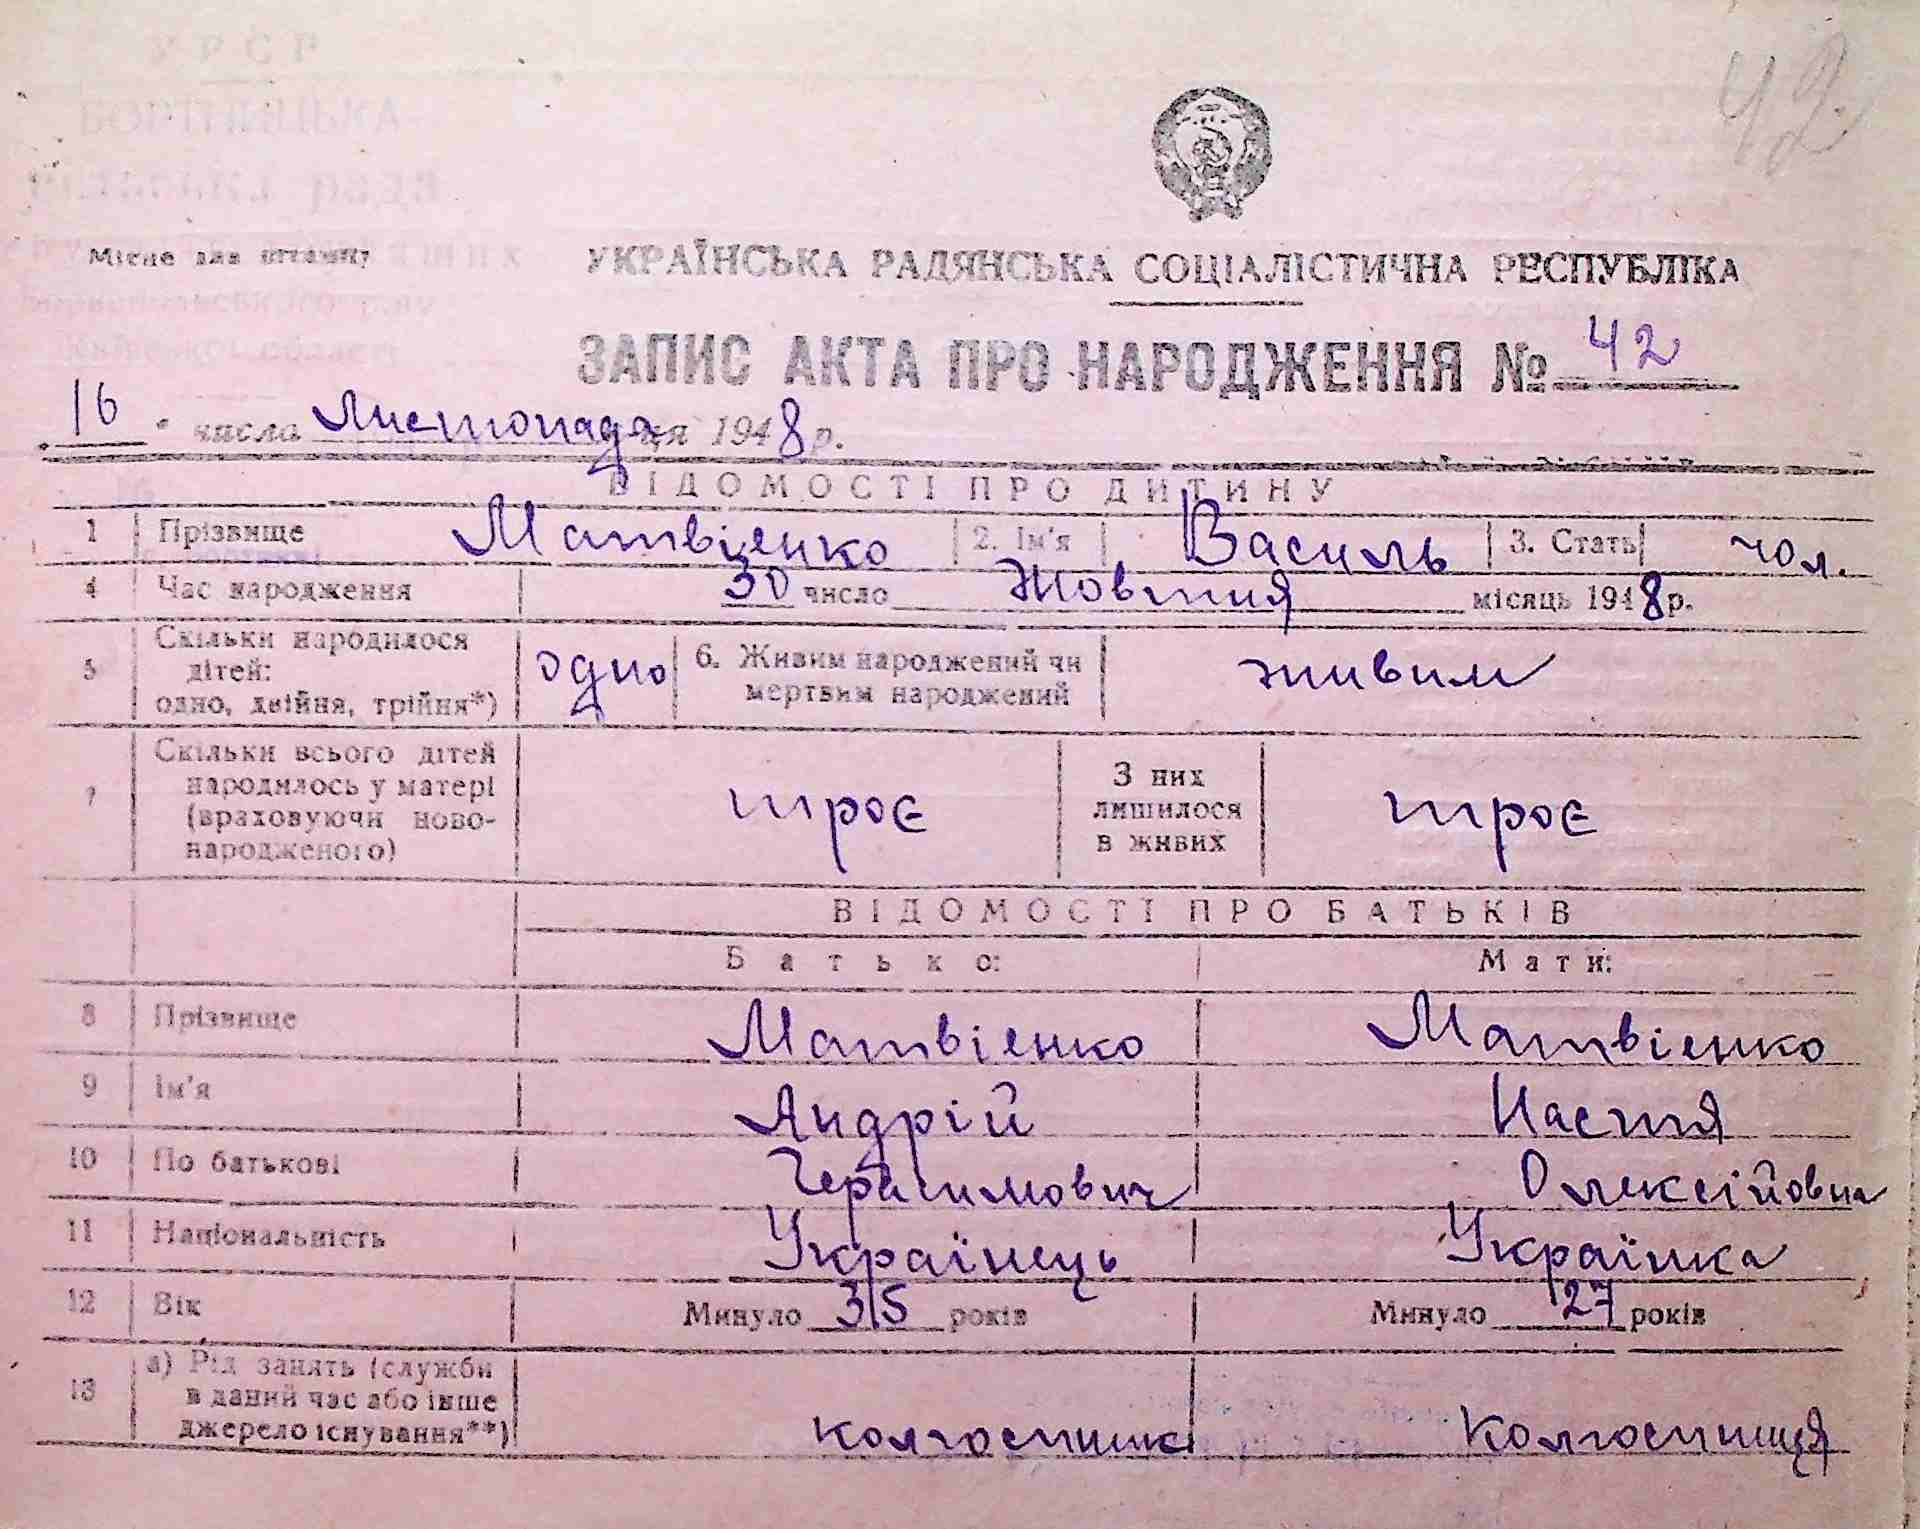 УРСР
42
БОРТНИЦЬКА
сільська рада
Місце для штампу
Бориспільського р-ну
Київської області
УКРАЇНСЬКА РАДЯНСЬКА СОЦІАЛІСТИЧНА РЕСПУБЛІКА
ЗАПИС АКТА ПРО НАРОДЖЕННЯ № 42
16 числа Листопада ця 1948 р.
ВІДОМОСТІ ПРО ДИТИНУ
1 Прізвище Матвієнко 2. Ім'я Василь 3. Стать чол.
4 Час народження 30 число Жовтня місяць 1948 р.
5 Скільки народилося
дітей:
одно, двійня, трійня*) одно 6. Живим народжений чи
мертвим народжений живим
7 Скільки всього дітей
народилось у матері
(враховуючи ново-
народженого) троє З них
лишилося
в живих троє
ВІДОМОСТІ ПРО БАТЬКІВ
Батько: Мати:
8 Прізвище Матвієнко Матвієнко
9 Ім'я Андрій Настя
10 По батькові Герасимович Олексійовна
11 Національність Українець Українка
12 Вік Минуло 35 років Минуло 27 років
13 а) Рід занять (служби
в даний час або інше
джерело існування**) колгоспник Колгоспниця